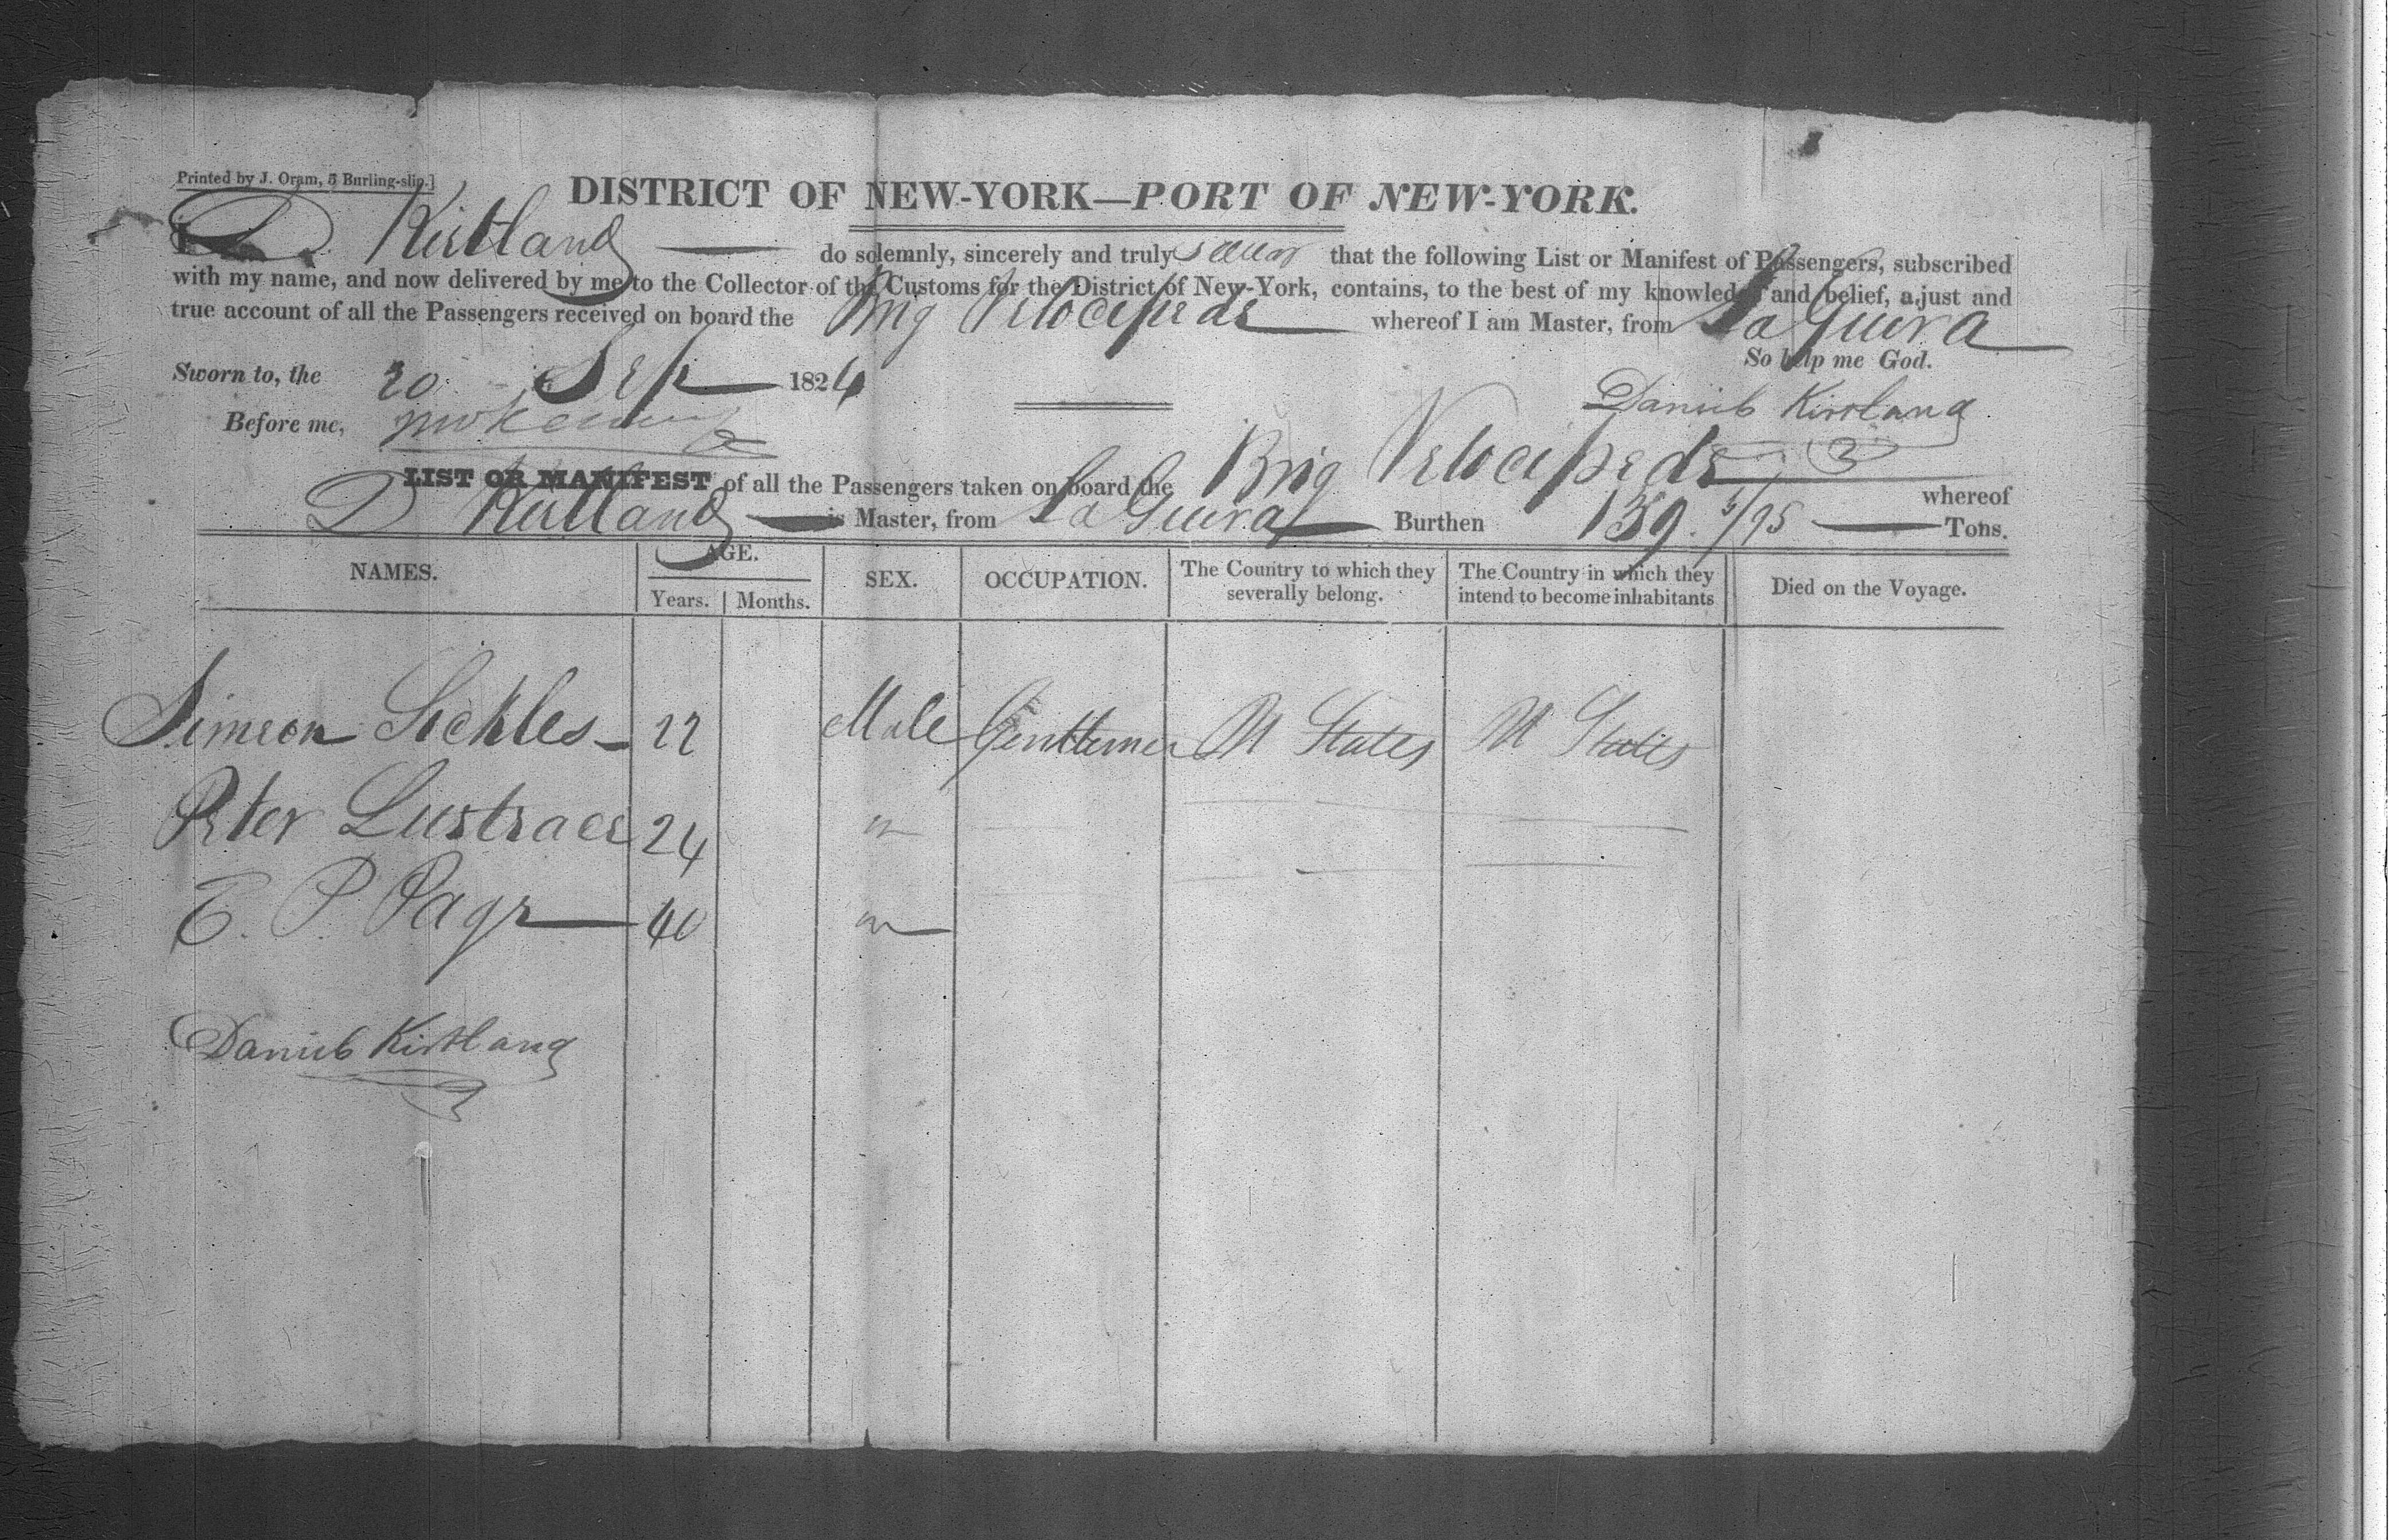 Printed by J. Oram, 5 Burling-slip.]
DISTRICT OF NEW-YORK—PORT OF NEW-YORK.
I D Kirtland do solemnly, sincerely and truly swear that the following List or Manifest of Passengers, subscribed
with my name, and now delivered by me to the Collector of the Customs for the District of New-York, contains, to the best of my knowledge and belief, a just and
true account of all the Passengers received on board the Brig Velocipede whereof I am Master, from La Guira
So help me God.
Sworn to, the 20 Sep 1824
Daniel Kirtland
Before me,
LIST OR MANIFEST of all the Passengers taken on board the Brig Velocipede whereof
D Kirtland is Master, from La Guira Burthen 139 /95 Tons.
NAMES. AGE. SEX. OCCUPATION. The Country to which they severally belong. The Country in which they intend to become inhabitants Died on the Voyage.
Years. Months.
Simeon Sickles 22 Male Gentlemen U States U States
Peter Lustrace 24 "
E. P. Page 40 "
Daniel Kirtland